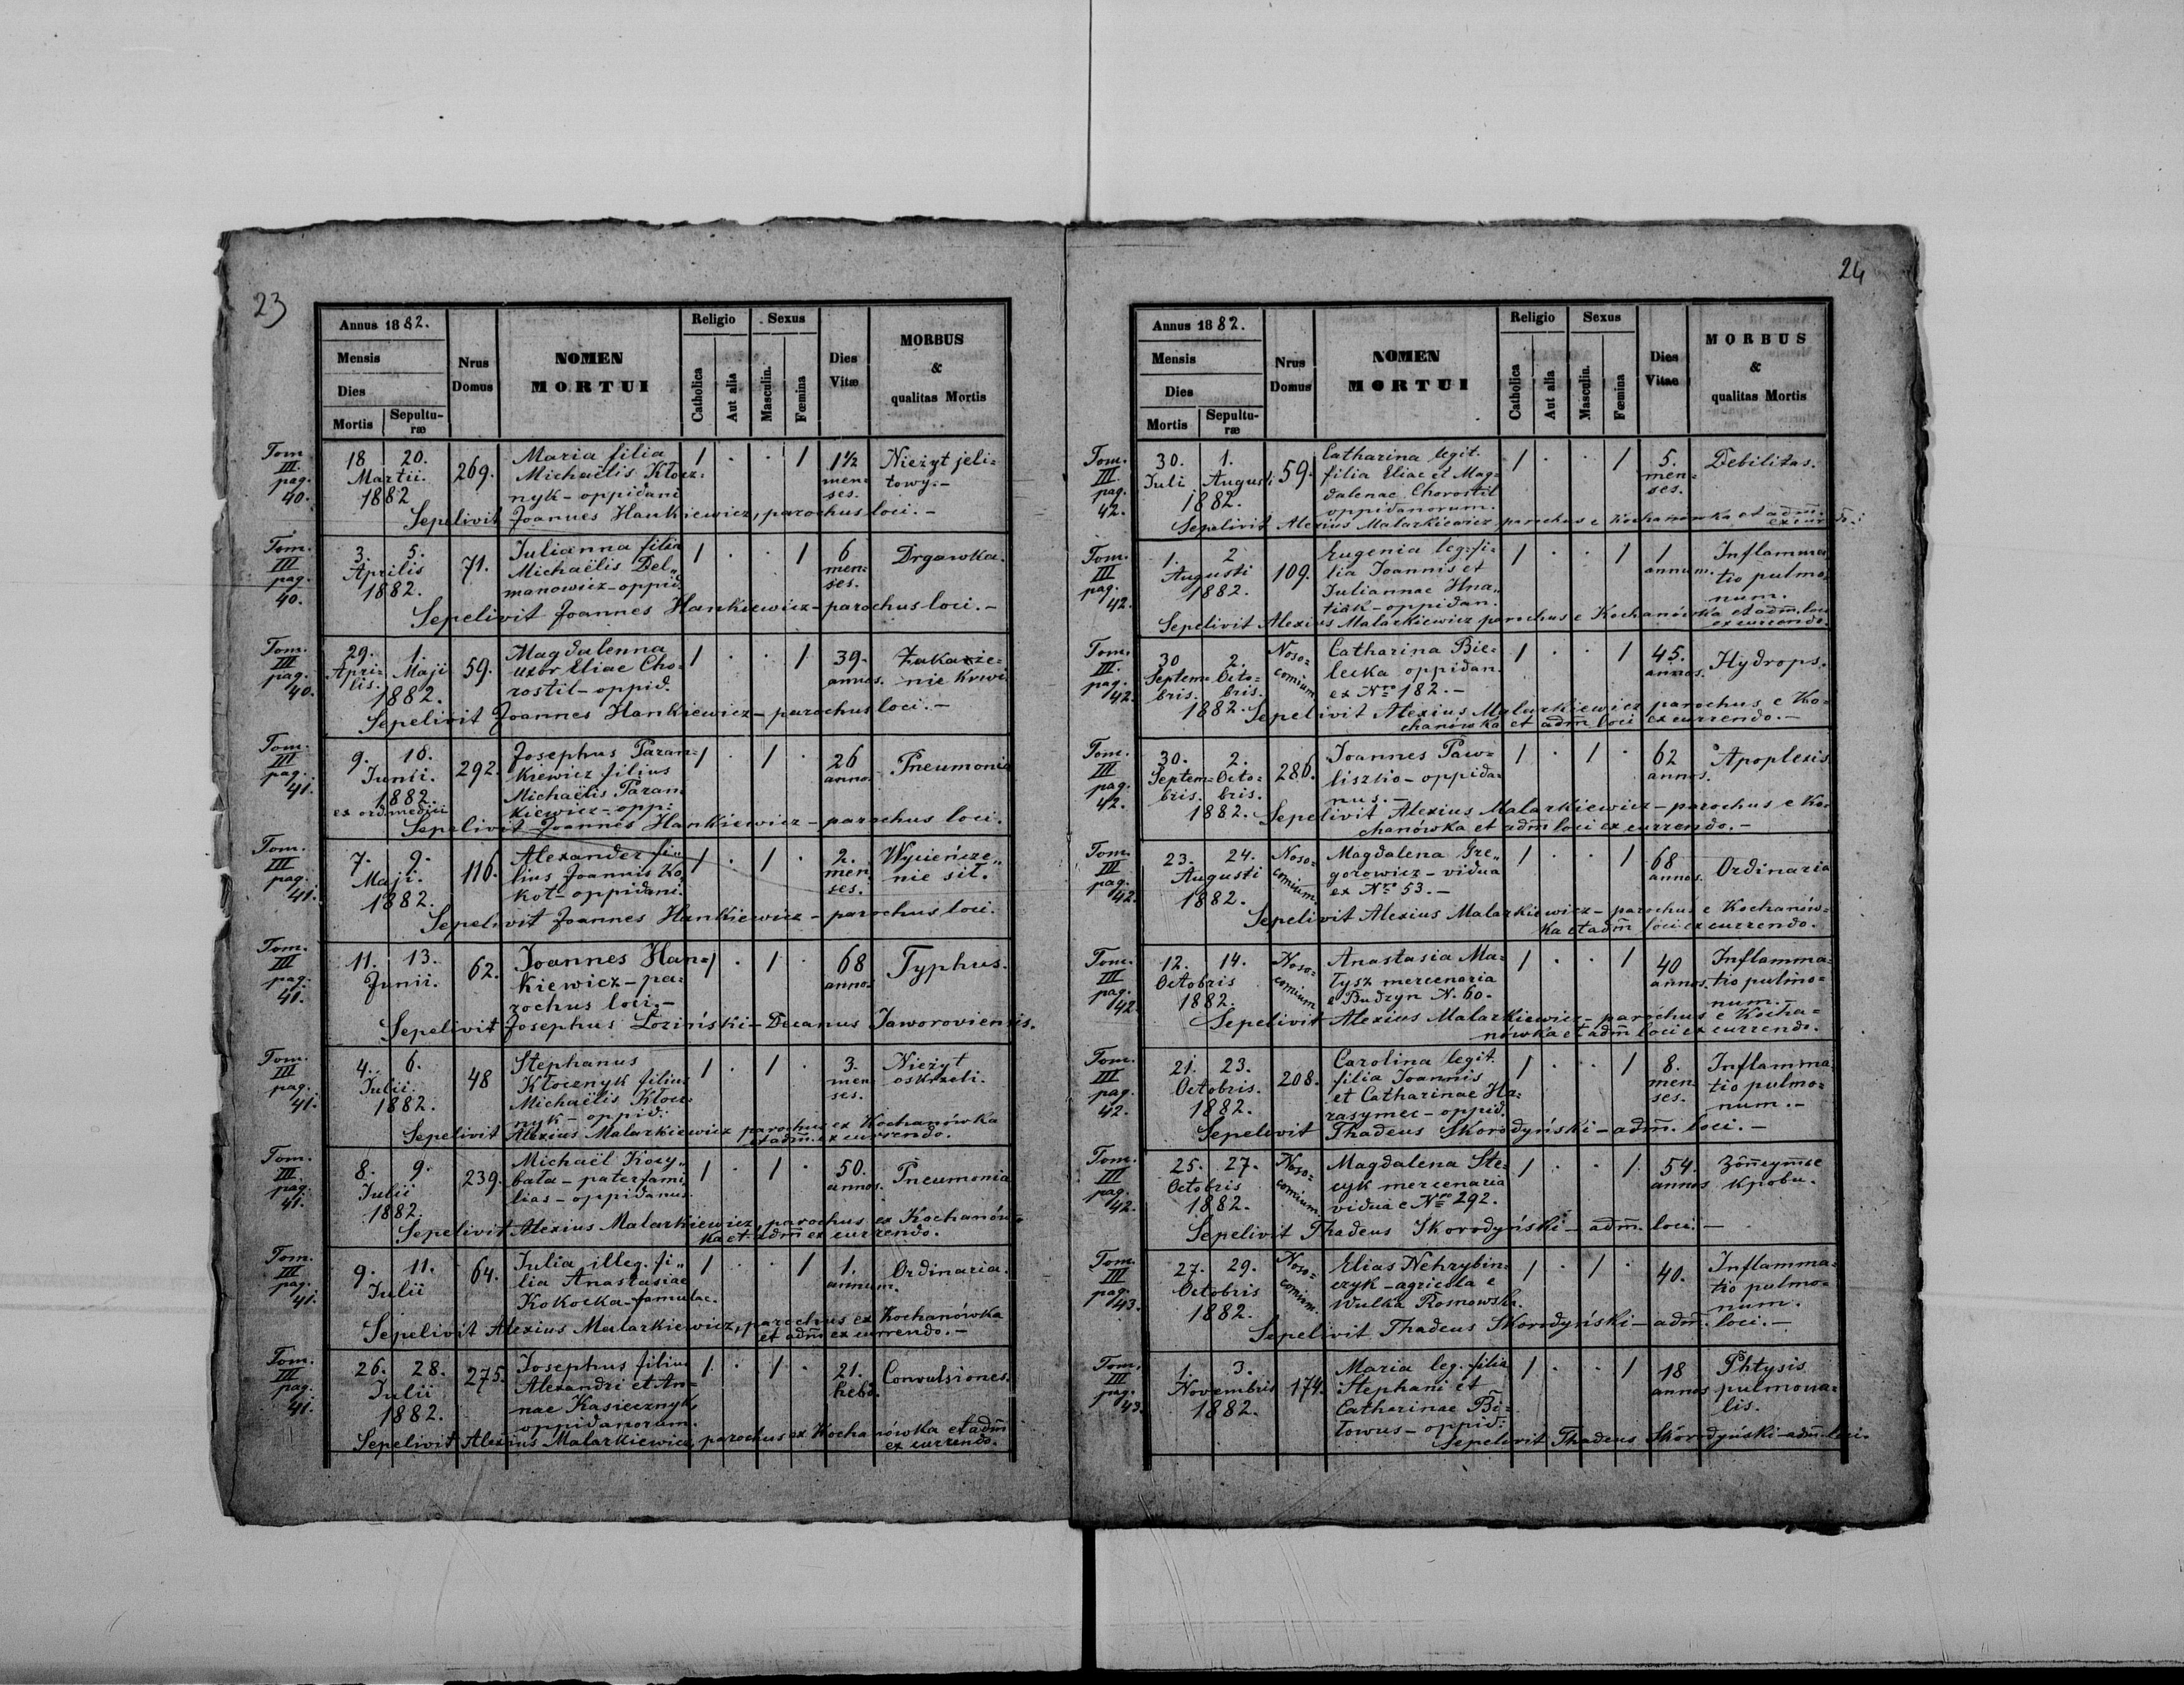 23
Annus 1882.
Mensis
Dies
Mortis
Sepultu-
ræ
Nrus
Domus
NOMEN
MORTUI
Religio
Catholica
Aut alia
Sexus
Masculin.
Fœmina
Dies
Vitæ
MORBUS
&
qualitas Mortis
Tom. III. pag. 40.
18 20. Martii. 1882
269.
Maria filia
Michaëlis Kłocz=
nyk - oppidani
1 . . 1
1½ men= ses.
Nieżyt jeli=
towy. -
Sepelivit Joannes Hankiewicz, parochus loci. -
Tom. III pag. 40.
3. 5. Aprilis 1882.
71.
Julianna filia
Michaëlis Del„
manowicz - oppid.
1 . . 1
6 men= ses.
Drgawka.
Sepelivit Joannes Hankiewicz - parochus loci. -
Tom. III pag. 40.
29. Apri= lis. 1. Maji 1882.
59.
Magdalenna
uxor Eliae Cho=
rostil - oppid.
1 . . 1
39. annos.
Zakaże=
nie krwi
Sepelivit Joannes Hankiewicz - parochus loci. -
Tom. III pag. 41.
9. 10. Junii. 1882.
ex ord. medici
292.
Josephus Paran=
kiewicz filius
Michaëlis Paran
kiewicz - opp:
1 . 1 .
26 anno.
Pneumonia
Sepelivit Joannes Hankiewicz - parochus loci.
Tom. III pag. 41.
7. 9. Maji. 1882.
116.
Alexander fi„
lius Joannis Ko
kot - oppidani.
1 . 1 .
2. men ses.
Wycieńcze„
nie sił.
Sepelivit Joannes Hankiewicz - parochus loci.
Tom. III pag. 41.
11. 13. Junii.
62.
Joannes Han=
kiewicz - pa=
rochus loci. -
1 . 1 .
68 anno.
Typhus.
Sepelivit Josephus Łoziński - Decanus Jaworoviensis.
Tom. III pag. 41.
4. 6. Julii. 1882.
48
Stephanus
Kłocznyk filius
Michaëlis Kłocz
nyk - oppid:
1 . 1 .
3. men ses.
Nieżyt
oskrzeli.
Sepelivit Alexius Malarkiewicz parochus ex Kochanówka
et adm. excurrendo.
Tom. III. pag. 41.
8. 9. Julii 1882.
239.
Michaël Kocy„
bała - paterfami
lias - oppidanus.
1 . 1 .
50. annos.
Pneumonia
Sepelivit Alexius Malarkiewicz, parochus ex Kochanów=
ka et adm excurrendo.
Tom. III pag. 41.
9. 11. Julii
64.
Julia illeg. fi„
lia Anastasiae
Kokocka - famulae.
1 . . 1
1. annum.
Ordinaria.
Sepelivit Alexius Malarkiewicz, parochus ex Kochanówka
et adm excurrendo. -
Tom. III pag. 41.
26. 28. Julii 1882.
275.
Josephus filius
Alexandri et An=
nae Kasiecznyk
oppidanorum.
1 . 1 .
21. hebd.
Convulsiones.
Sepelivit Alexius Malarkiewicz, parochus ex Kochanówka et adm
excurrendo.
24
Annus 1882.
Mensis
Dies
Mortis
Sepultu-
ræ
Nrus
Domus
NOMEN
MORTUI
Religio
Catholica
Aut alia
Sexus
Masculin.
Fœmina
Dies
Vitae
MORBUS
&
qualitas Mortis
Tom. III. pag. 42.
30. Juli 1. Augusti 1882.
59.
Catharina legit.
filia Eliae et Mag=
dalenae Chorostil
oppidanorum.
1 . . 1
5. men= ses.
Debilitas.
Sepelivit Alexius Malarkiewicz parochus e Kochanówka et adm.
Tom. III pag. 42.
1. 2 Augusti 1882.
109.
Eugenia leg. fi=
lia Joannis et
Juliannae Hna„
tiak - oppidan.
1 . . 1
1 annum.
Inflamma
tio pulmo=
num.
Sepelivit Alexius Malarkiewicz parochus e Kochanówka et adm. loci
excurrendo.
Tom. III. pag. 42.
30 Septem= bris. 2. Octo= bris. 1882.
Noso= comium
Catharina Bie=
lecka oppidan.
ex Nro 182. -
1 . . 1
45. annos.
Hydrops.
Sepelivit Alexius Malarkiewicz parochus e Ko=
chanówka et adm loci excurrendo. -
Tom. III pag. 42.
30. Septem= bris. 2. Octo= bris. 1882.
286.
Joannes Paw=
liszko - oppida=
nus. -
1 . 1 .
62 annos.
Apoplexis
Sepelivit Alexius Malarkiewicz - parochus e Ko=
chanówka et adm loci excurrendo. -
Tom. III pag. 42.
23. 24. Augusti 1882.
Noso= comium
Magdalena Gre„
gorowicz - vidua
ex Nro 53. -
1 . . 1
68 annos.
Ordinaria
Sepelivit Alexius Malarkiewicz - parochus e Kochanów=
ka et adm loci excurrendo.
Tom. III pag. 42.
12. 14. Octobris 1882.
Noso= comium
Anastasia Ma=
tysz mercenaria
e Budzyn N. 60.
1 . . 1
40 annos.
Inflamma=
tio pulmo=
num. -
Sepelivit Alexius Malarkiewicz - parochus e Kocha=
nówka et adm loci excurrendo.
Tom. III pag. 42.
21. 23. Octobris. 1882.
208.
Carolina legit.
filia Joannis
et Catharinae Ha=
rasymec - oppid.
1 . . 1
8. men ses.
Inflamma=
tio pulmo=
num. -
Sepelivit Thadeus Skorodyński - adm. loci. -
Tom. III pag. 42.
25. 27. Octobris 1882.
Noso= comium.
Magdalena Ste=
cyk mercenaria
vidua e Nro 292.
1 . . 1
54. annos
крови.
Sepelivit Thadeus Skorodyński - adm. loci. -
Tom. III pag. 43.
27. 29. Octobris 1882.
Noso= comium.
Elias Nehrybin=
czyk - agricola e
Wulka Rosnowska.
1 . 1 .
40.
Inflamma=
tio pulmo=
num.
Sepelivit Thadeus Skorodyński - adm. loci. -
Tom. III pag. 43.
1. 3. Novembris 1882.
174.
Maria leg. filia
Stephani et
Catharinae Bi=
towus - oppid:
1 . . 1
18 annos
Phtysis
pulmona=
lis.
Sepelivit Thadeus Skorodyński - adm. loci.